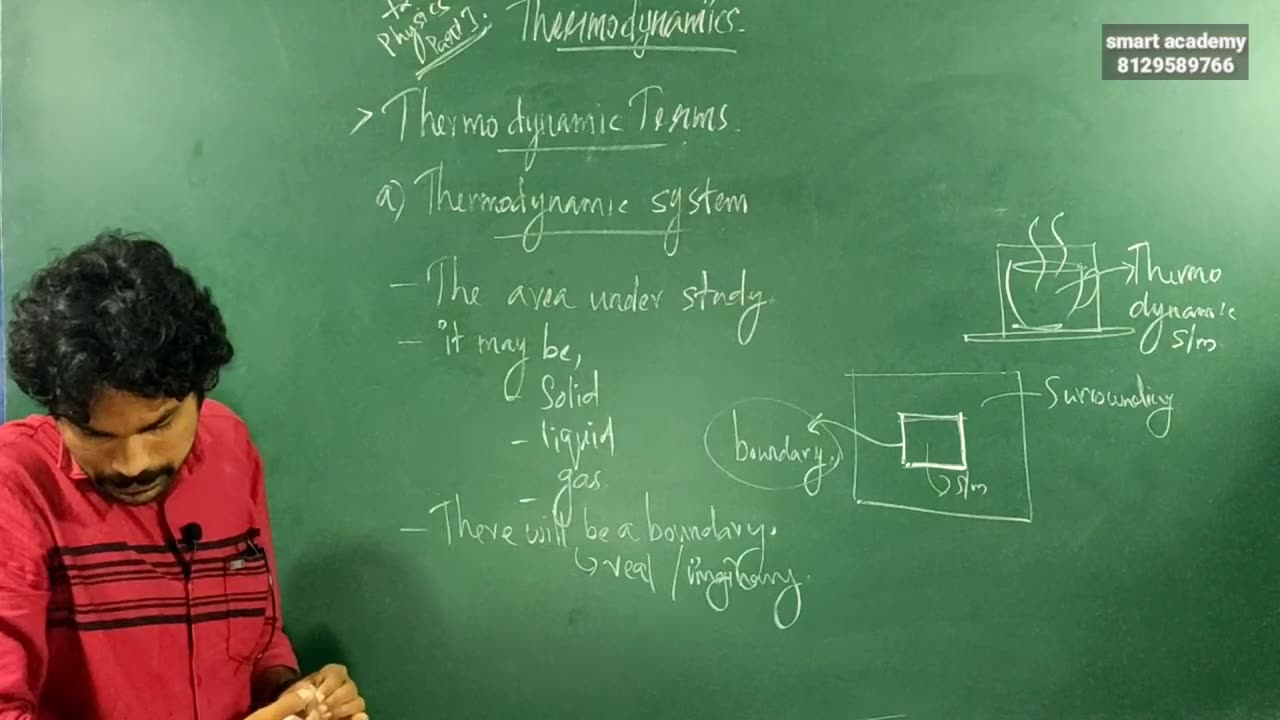 Physics
Part 1.
Thermodynamics.
smart academy
8129589766
> Thermodynamic Terms.
a) Thermodynamic system
- The area under study.
- it may be,
Solid
- liquid
- gas
- There will be a boundary.
real /
Thermo
dynamic
s/m
Surrounding
boundary.
s/m